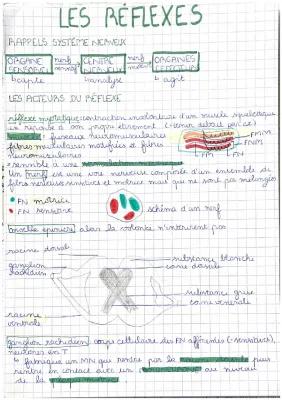 LES RÉFLEXES
RAPPELS SYSTÈME NERVEUX
ORGANE SENSORIEL nerf sensitif CENTRE NERVEUX nerf moteur ORGANES EFFECTEURS
↳ capte ↳ analyse ↳ agit
LES ACTEURS DU RÉFLEXE
réflexe myotatique: contraction involontaire d'un muscle squelettique
en réponse à son propre étirement
: fuseaux neuromusculaires
fibres musculaires modifiées et fibres
neuromusculaires
FNM
FM
FN
= sensible à une
Un nerf est une voie nerveuse composée d'un ensemble de
fibres nerveuses sensitives et motrices mais qui ne sont pas mélangées
FN motrice
FN sensitive
schéma d'un nerf
où la volonté n'intervient pas
racine dorsale
substance blanche
ganglion rachidien
corne dorsale
substance grise
corne ventrale
racine ventrale
ganglion rachidien: corps cellulaire des FN afférentes (= sensitives)
neurones en T
↳ fabrique un MN qui rentre par la puis
rentre en contact avec un au niveau
de la